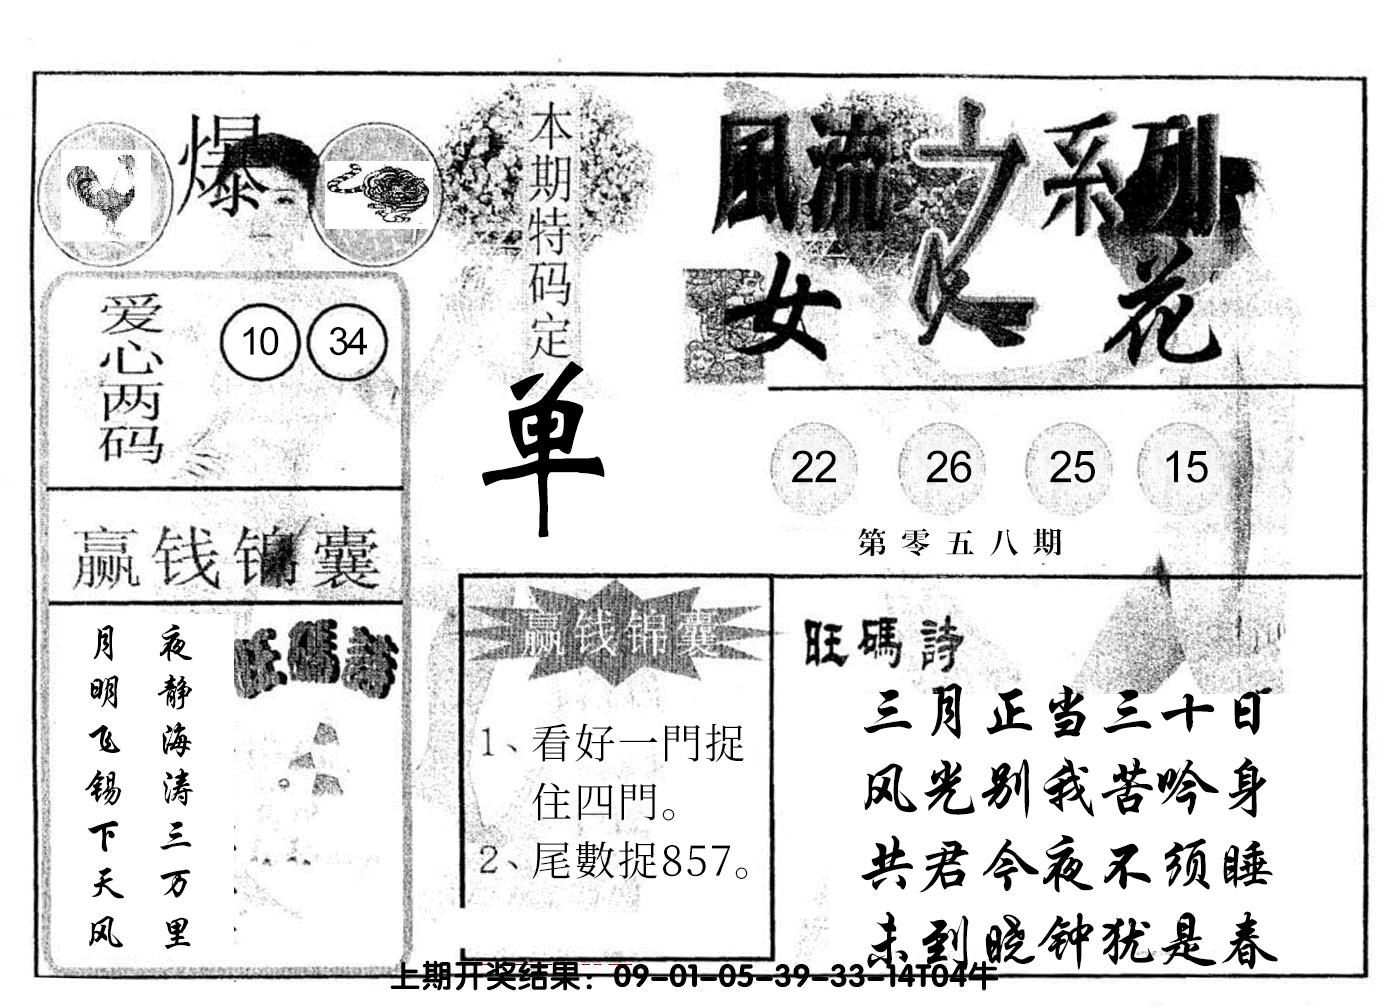 爆
本期特码定
单
風流之系列
女人花
爱心两码
10 34
22 26 25 15
第零五八期
赢钱锦囊
旺碼詩
夜静海涛三万里
月明飞锡下天风
赢钱锦囊
1、看好一門捉
住四門。
2、尾數捉857。
旺碼詩
三月正当三十日
风光别我苦吟身
共君今夜不须睡
未到晓钟犹是春
上期开奖结果：09-01-05-39-33-14T04牛